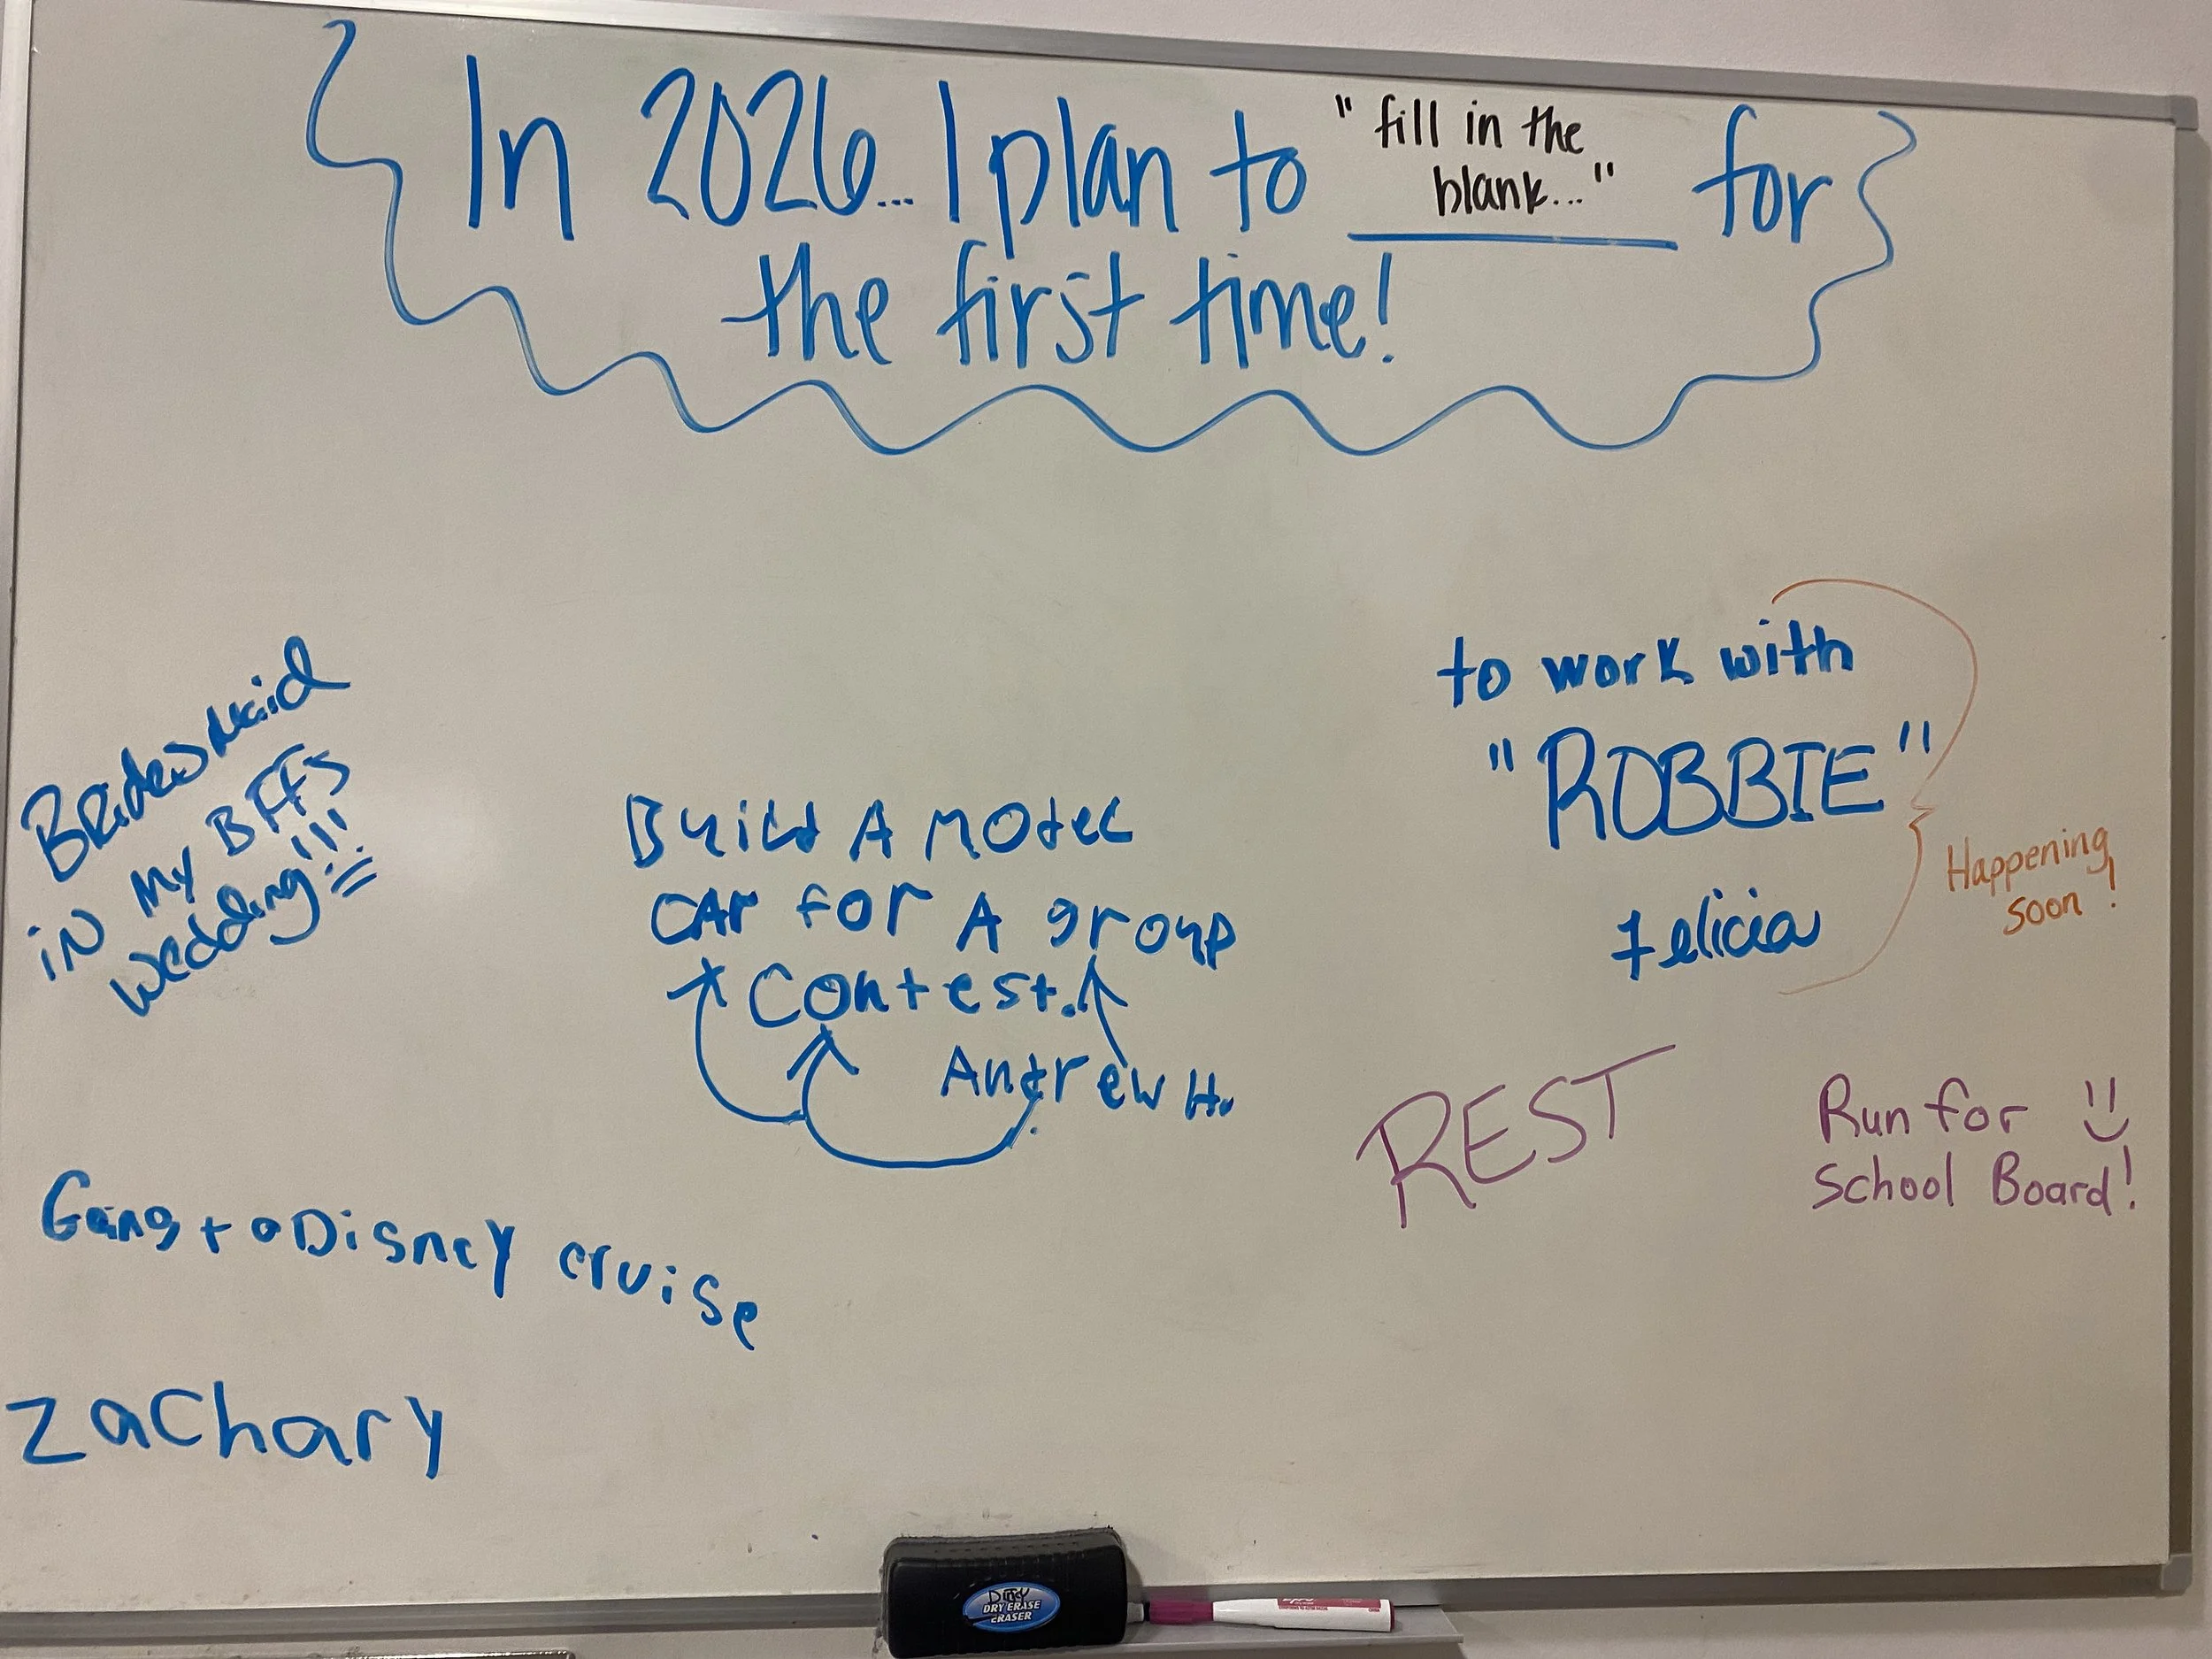 In 2026... I plan to "fill in the blank..." for
the first time!
Bridesmaid
in my BFFs
wedding!!!
Build A Model
CAr for A group
Contest.
Andrew H.
to work with
"ROBBIE"
Felicia
Happening
soon!
REST
Run for
School Board!
Going to Disney cruise
zachary
Dirty
DRY ERASE
ERASER
expo